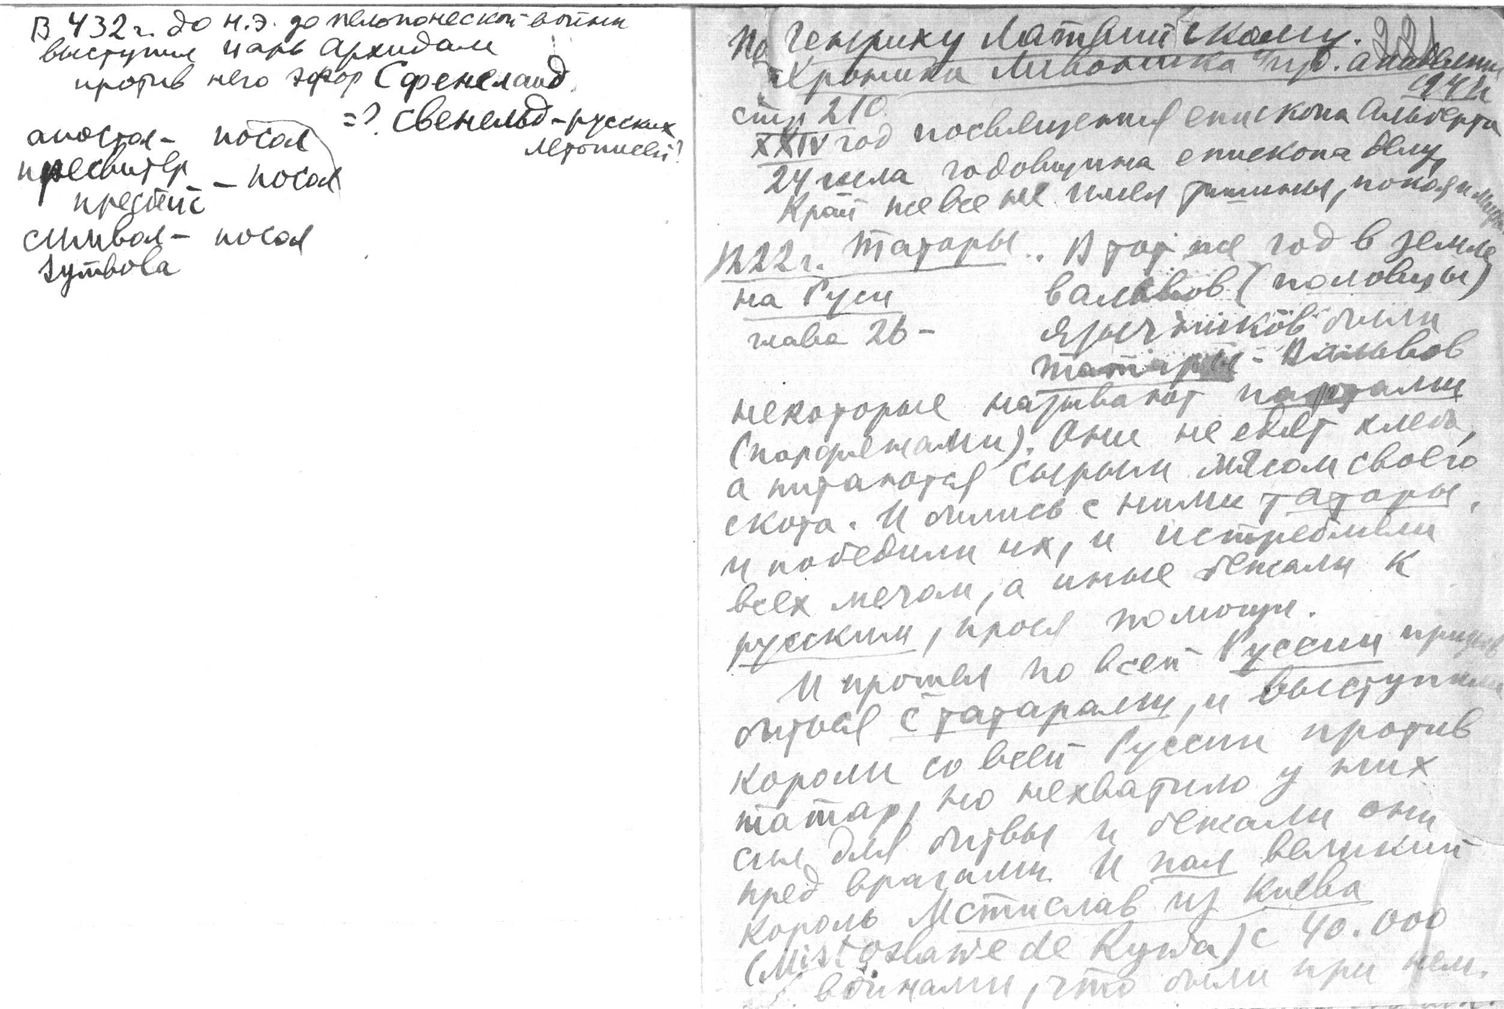 В 432 г. до н.э. до пелопонеской войны
выступил царь Архидам
против него эфор Сфенелаид
=? Свенельд - русских
летописей?
апостол - посол
пресвитер
пресбис - посол
символ - посол
Symbola
По Генриху Латвийскому. 221
"Хроника Ливонска" изд. академии
стр. 210
XXIV год посвящения епископа Альберта
24 шла годовщина епископа делу,
Край же все не имел тишины, покоя и мира.
1222 г. Татары .. В тот же год в земле
на Руси вальвов (половцы)
глава 26 - язычников были
татары - Вальвов
некоторые называют партами
(парфянами). Они не едят хлеба,
а питаются сырым мясом своего
скота. И бились с ними татары,
и победили их, и истребили
всех мечом, а иные бежали к
русским, прося помощи.
И прошел по всей Руссии призыв
биться с татарами, и выступили
короли со всей Руссии против
татар, но нехватило у них
сил для битвы и бежали они
пред врагами. И пал великий
король Мстислав из Киева
(Mistoslawe de Kywa) с 40.000
воинами, что были при нем.